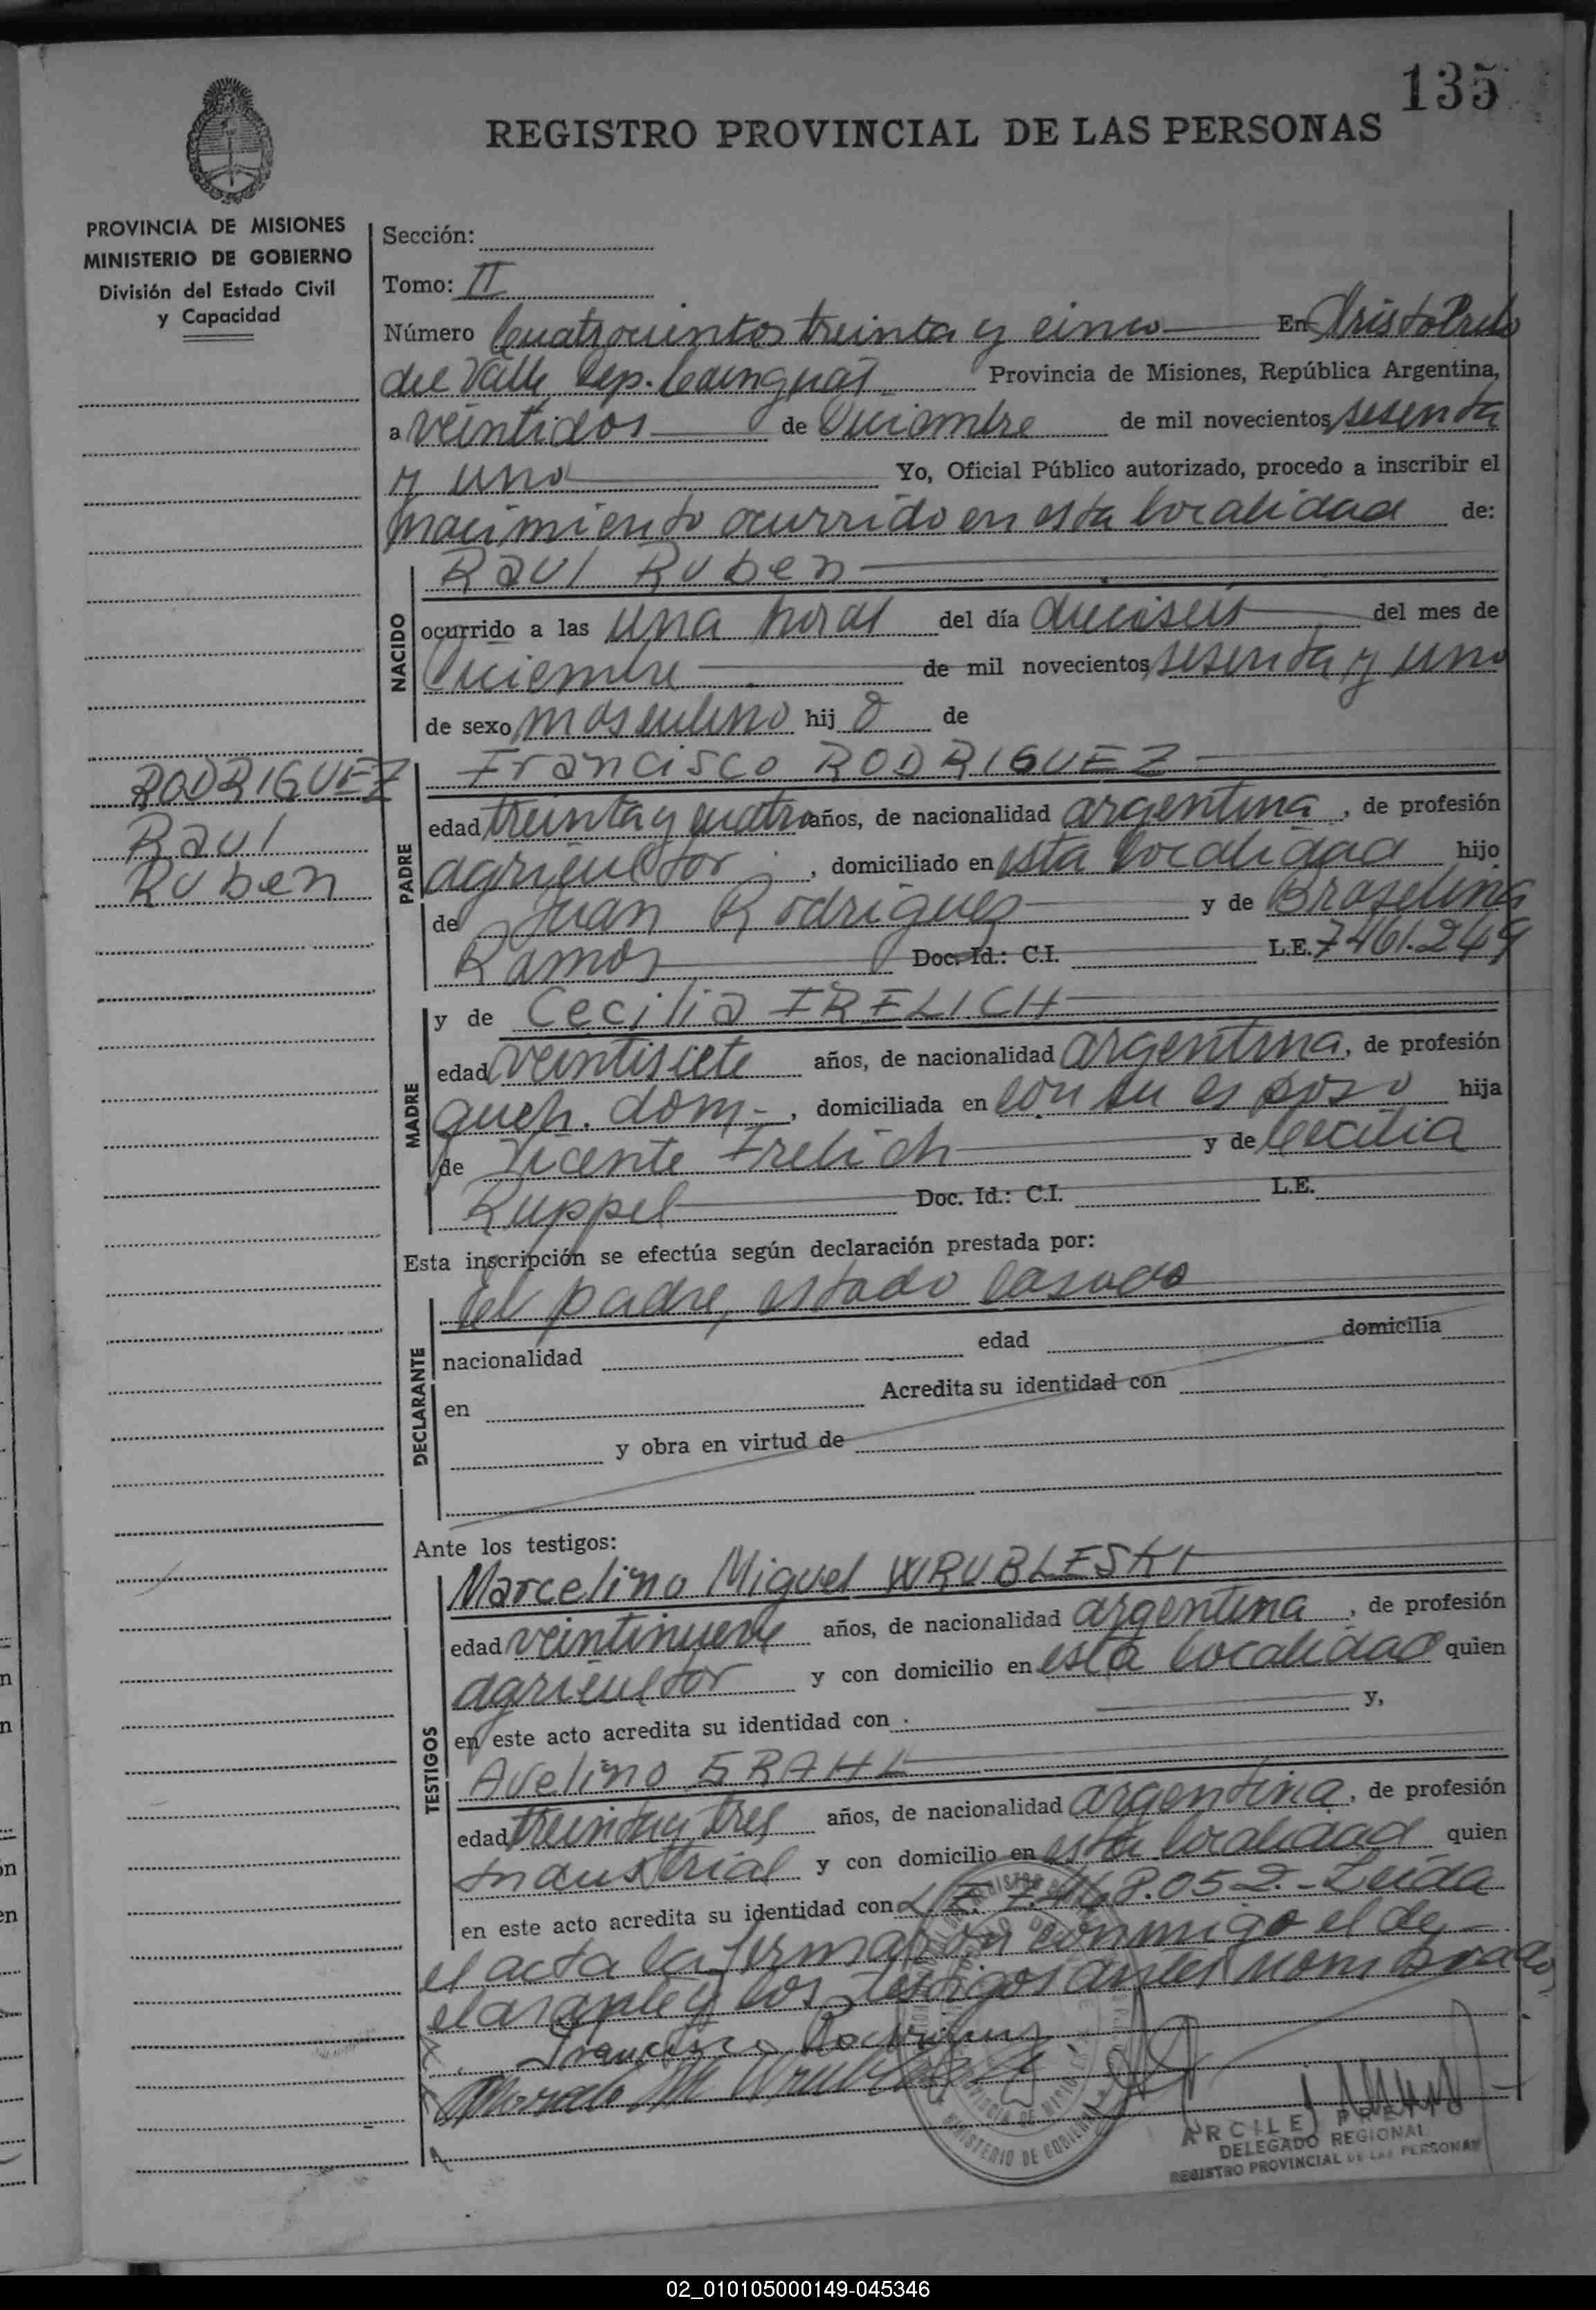 135
REGISTRO PROVINCIAL DE LAS PERSONAS
PROVINCIA DE MISIONES
MINISTERIO DE GOBIERNO
División del Estado Civil
y Capacidad
Sección:
Tomo: II
Número Cuatrocientos treinta y cinco En Aristobulo
del Valle, Dep. Cainguas Provincia de Misiones, República Argentina,
a veintidos de Diciembre de mil novecientos sesenta
y uno Yo, Oficial Público autorizado, procedo a inscribir el
nacimiento ocurrido en esta localidad de:
NACIDO
Raul Ruben
ocurrido a las una horas del día dieciseis del mes de
Diciembre de mil novecientos sesenta y uno
de sexo masculino hij o de
RODRIGUEZ
Raul
Ruben
PADRE
Francisco RODRIGUEZ
edad treinta y cuatro años, de nacionalidad argentina, de profesión
agricultor, domiciliado en esta localidad hijo
de Juan Rodriguez y de Braselina
Ramos Doc. Id.: C.I. L.E. 7461.249
MADRE
y de Cecilia FRELICH
edad veintisiete años, de nacionalidad argentina, de profesión
queh. dom.-, domiciliada en con su esposo hija
de Vicente Frelich y de Cecilia
Ruppel Doc. Id.: C.I. L.E.
Esta inscripción se efectúa según declaración prestada por:
DECLARANTE
el padre, estado casado
nacionalidad edad domicilia
en Acredita su identidad con
y obra en virtud de
Ante los testigos:
TESTIGOS
Marcelino Miguel WRUBLESKI
edad veintinueve años, de nacionalidad argentina, de profesión
agricultor y con domicilio en esta localidad quien
en este acto acredita su identidad con y,
Avelino GRAHL
edad treinta y tres años, de nacionalidad argentina, de profesión
industrial y con domicilio en esta localidad quien
en este acto acredita su identidad con L.E. 7.468.052.- Leida
el acta la firmaron conmigo el de-
clarante y los testigos antes nombrados
Francisco Rodriguez
DELEGADO REGIONAL
REGISTRO PROVINCIAL DE LAS PERSONAS
02_010105000149-045346